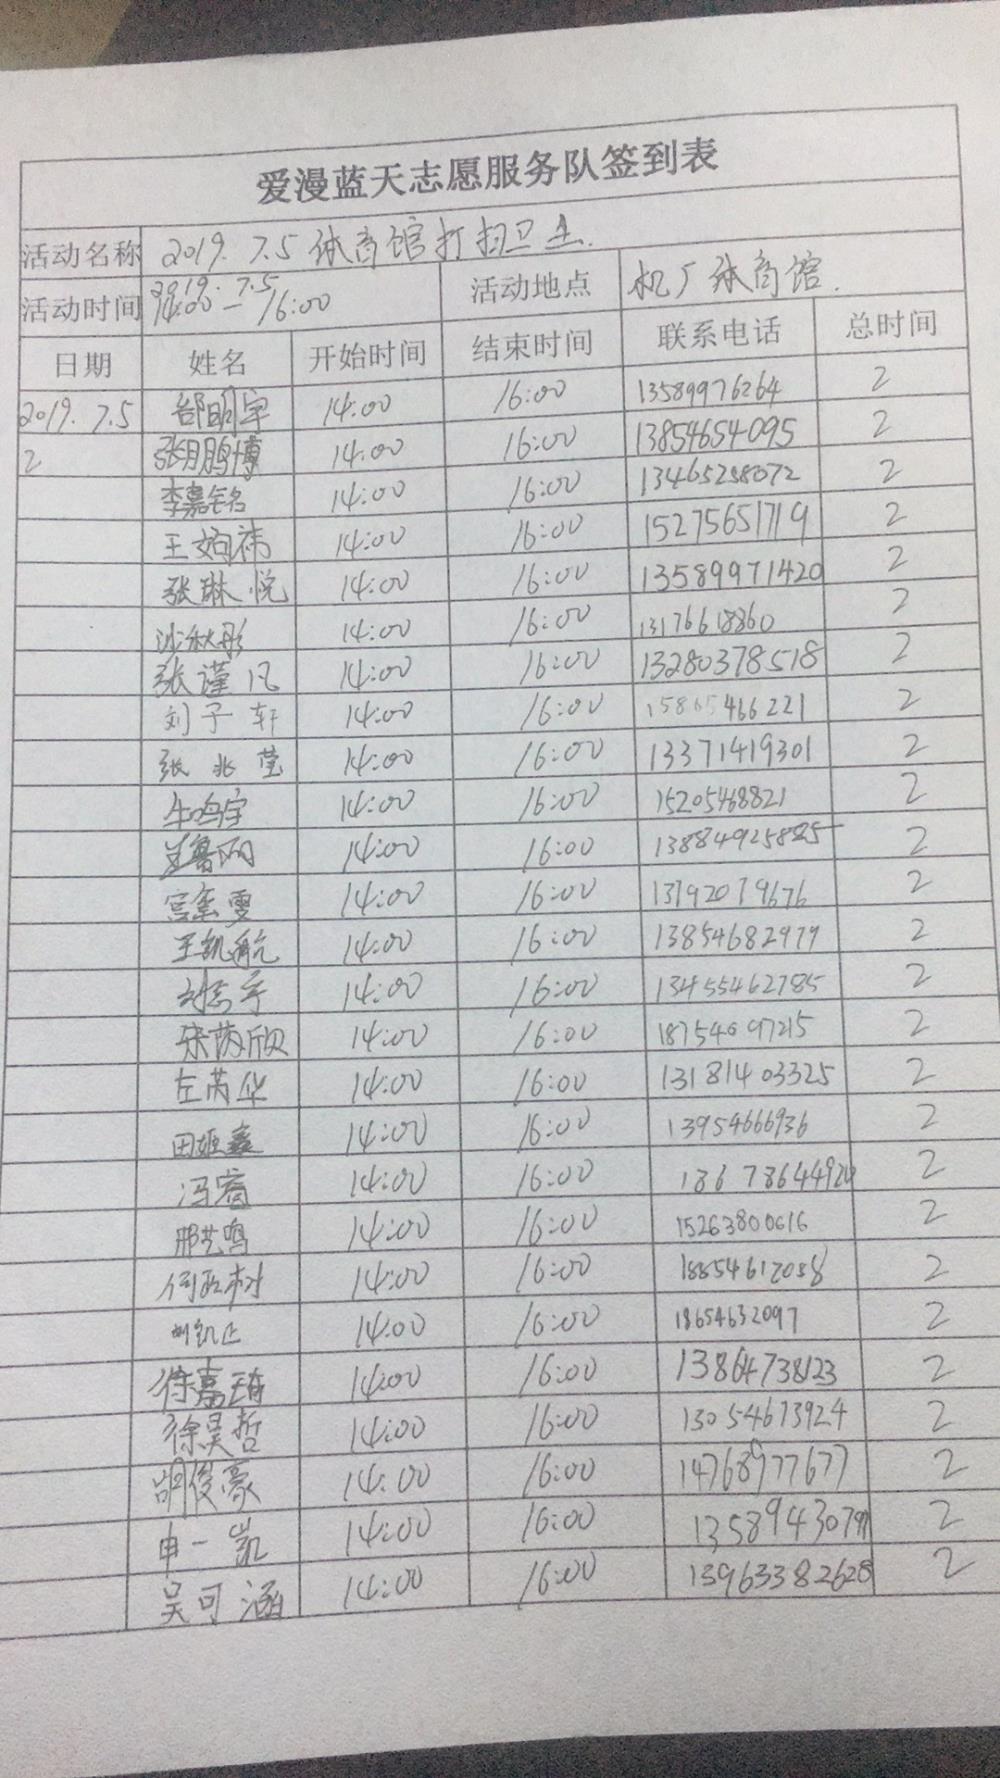 爱漫蓝天志愿服务队签到表
活动名称 2019.7.5体育馆打扫卫生.
活动时间 2019.7.5 14:00—16:00 活动地点 机厂体育馆.
日期 姓名 开始时间 结束时间 联系电话 总时间
2019.7.5 邰明宇 14:00 16:00 13589976264 2
2 张鹏博 14:00 16:00 13854654095 2
李嘉铭 14:00 16:00 13465258072 2
王 祎 14:00 16:00 15275651719 2
张琳悦 14:00 16:00 13589971420 2
沙秋彤 14:00 16:00 13176618860 2
张谨凡 14:00 16:00 13280378518 2
刘子轩 14:00 16:00 15865466221 2
张兆莹 14:00 16:00 13371419301 2
牛鸣宇 14:00 16:00 15205468821 2
14:00 16:00 2
宫玺雯 14:00 16:00 13792079676 2
王凯航 14:00 16:00 13854682979 2
刘志宇 14:00 16:00 13455462785 2
宋茵欣 14:00 16:00 18754697215 2
左芮华 14:00 16:00 13181403325 2
田姬鑫 14:00 16:00 13954666936 2
冯睿 14:00 16:00 18678644920 2
邢艺鸣 14:00 16:00 15263800616 2
何政树 14:00 16:00 18854612058 2
14:00 16:00 18654632097 2
徐嘉琦 14:00 16:00 13864738123 2
徐昊哲 14:00 16:00 13054673924 2
胡俊豪 14:00 16:00 14768977677 2
申一凯 14:00 16:00 2
吴可涵 14:00 16:00 13963382628 2